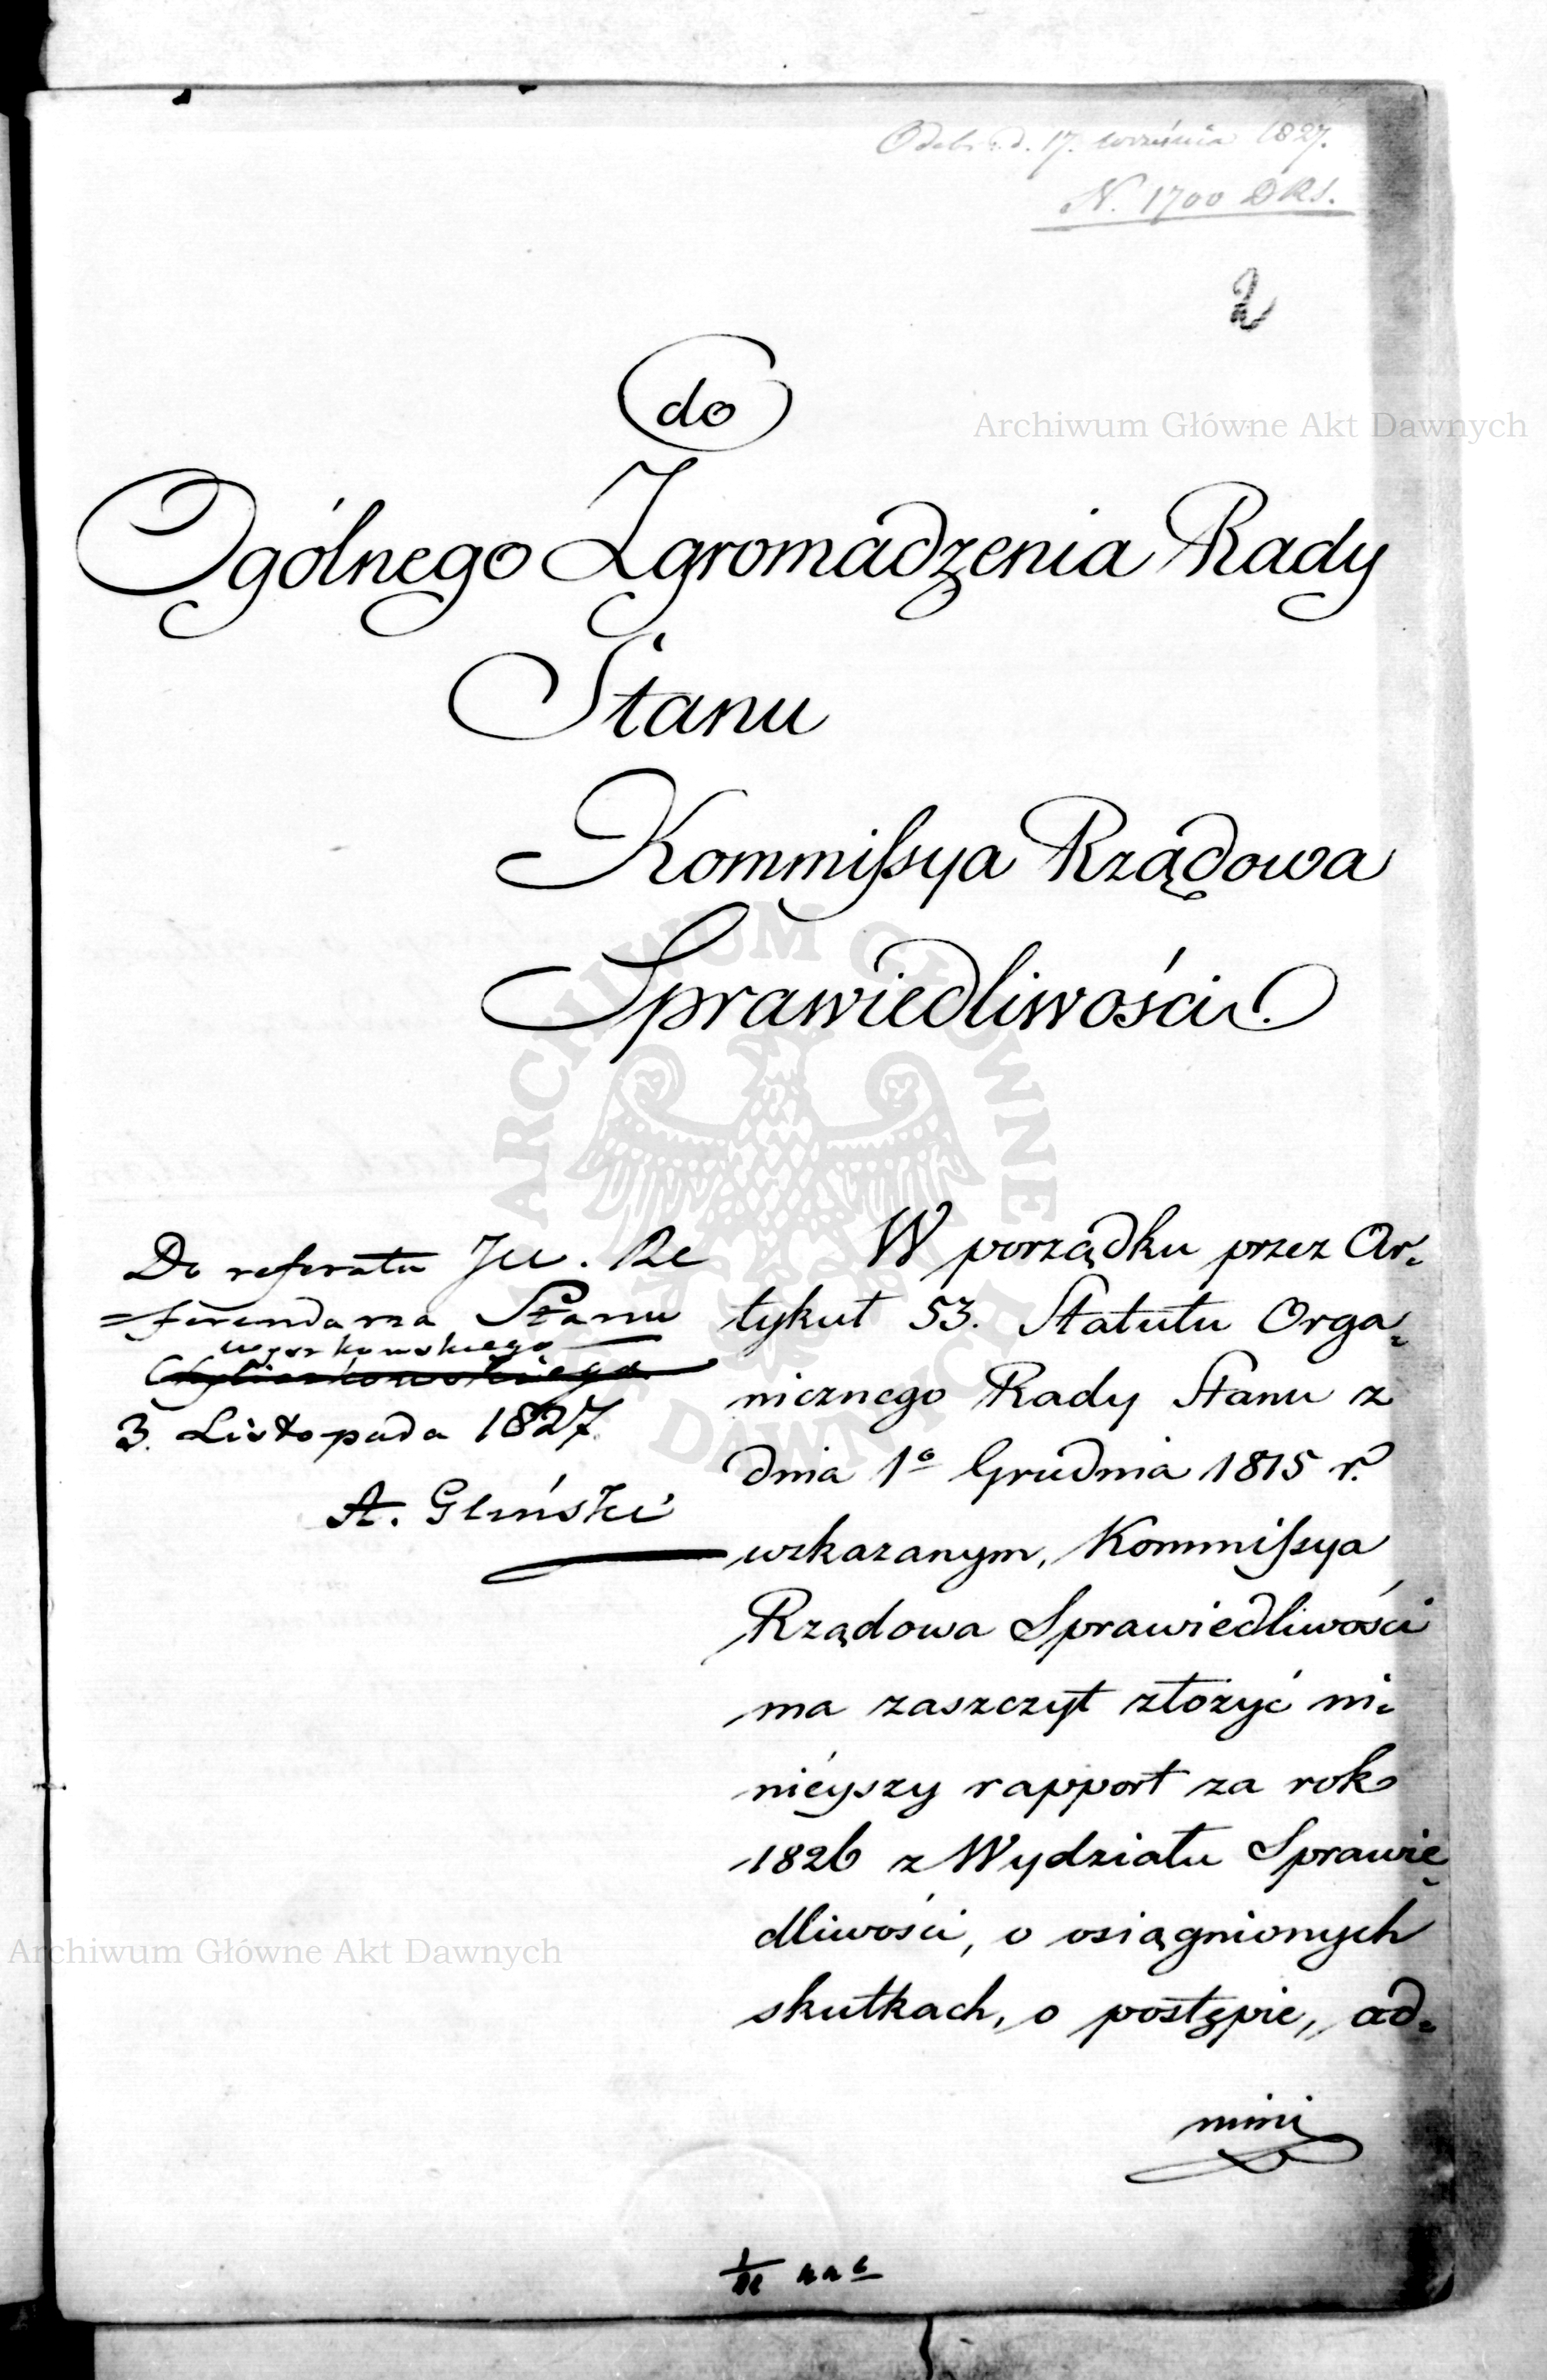 Odebr. d. 17. września 1827.
N. 1700 DRS.
2
do
Archiwum Główne Akt Dawnych
Ogólnego Zgromadzenia Rady
Stanu
Kommissya Rządowa
Sprawiedliwości.
ARCHIWUM GŁÓWNE AKT DAWNYCH
Do referatu JW. Re
=ferendarza Stanu
Wyczkowskiego
3. Listopada 1827.
A. Gliński
W porządku przez Ar-
tykuł 53. Statutu Orga-
nicznego Rady Stanu z
dnia 1o Grudnia 1815 r.
wskazanym, Kommissya
Rządowa Sprawiedliwości
ma zaszczyt złożyć ni-
niéyszy rapport za rok
1826 z Wydziału Sprawie-
dliwości, o osiągnionych
Archiwum Główne Akt Dawnych
skutkach, o postępie, ad-
mini